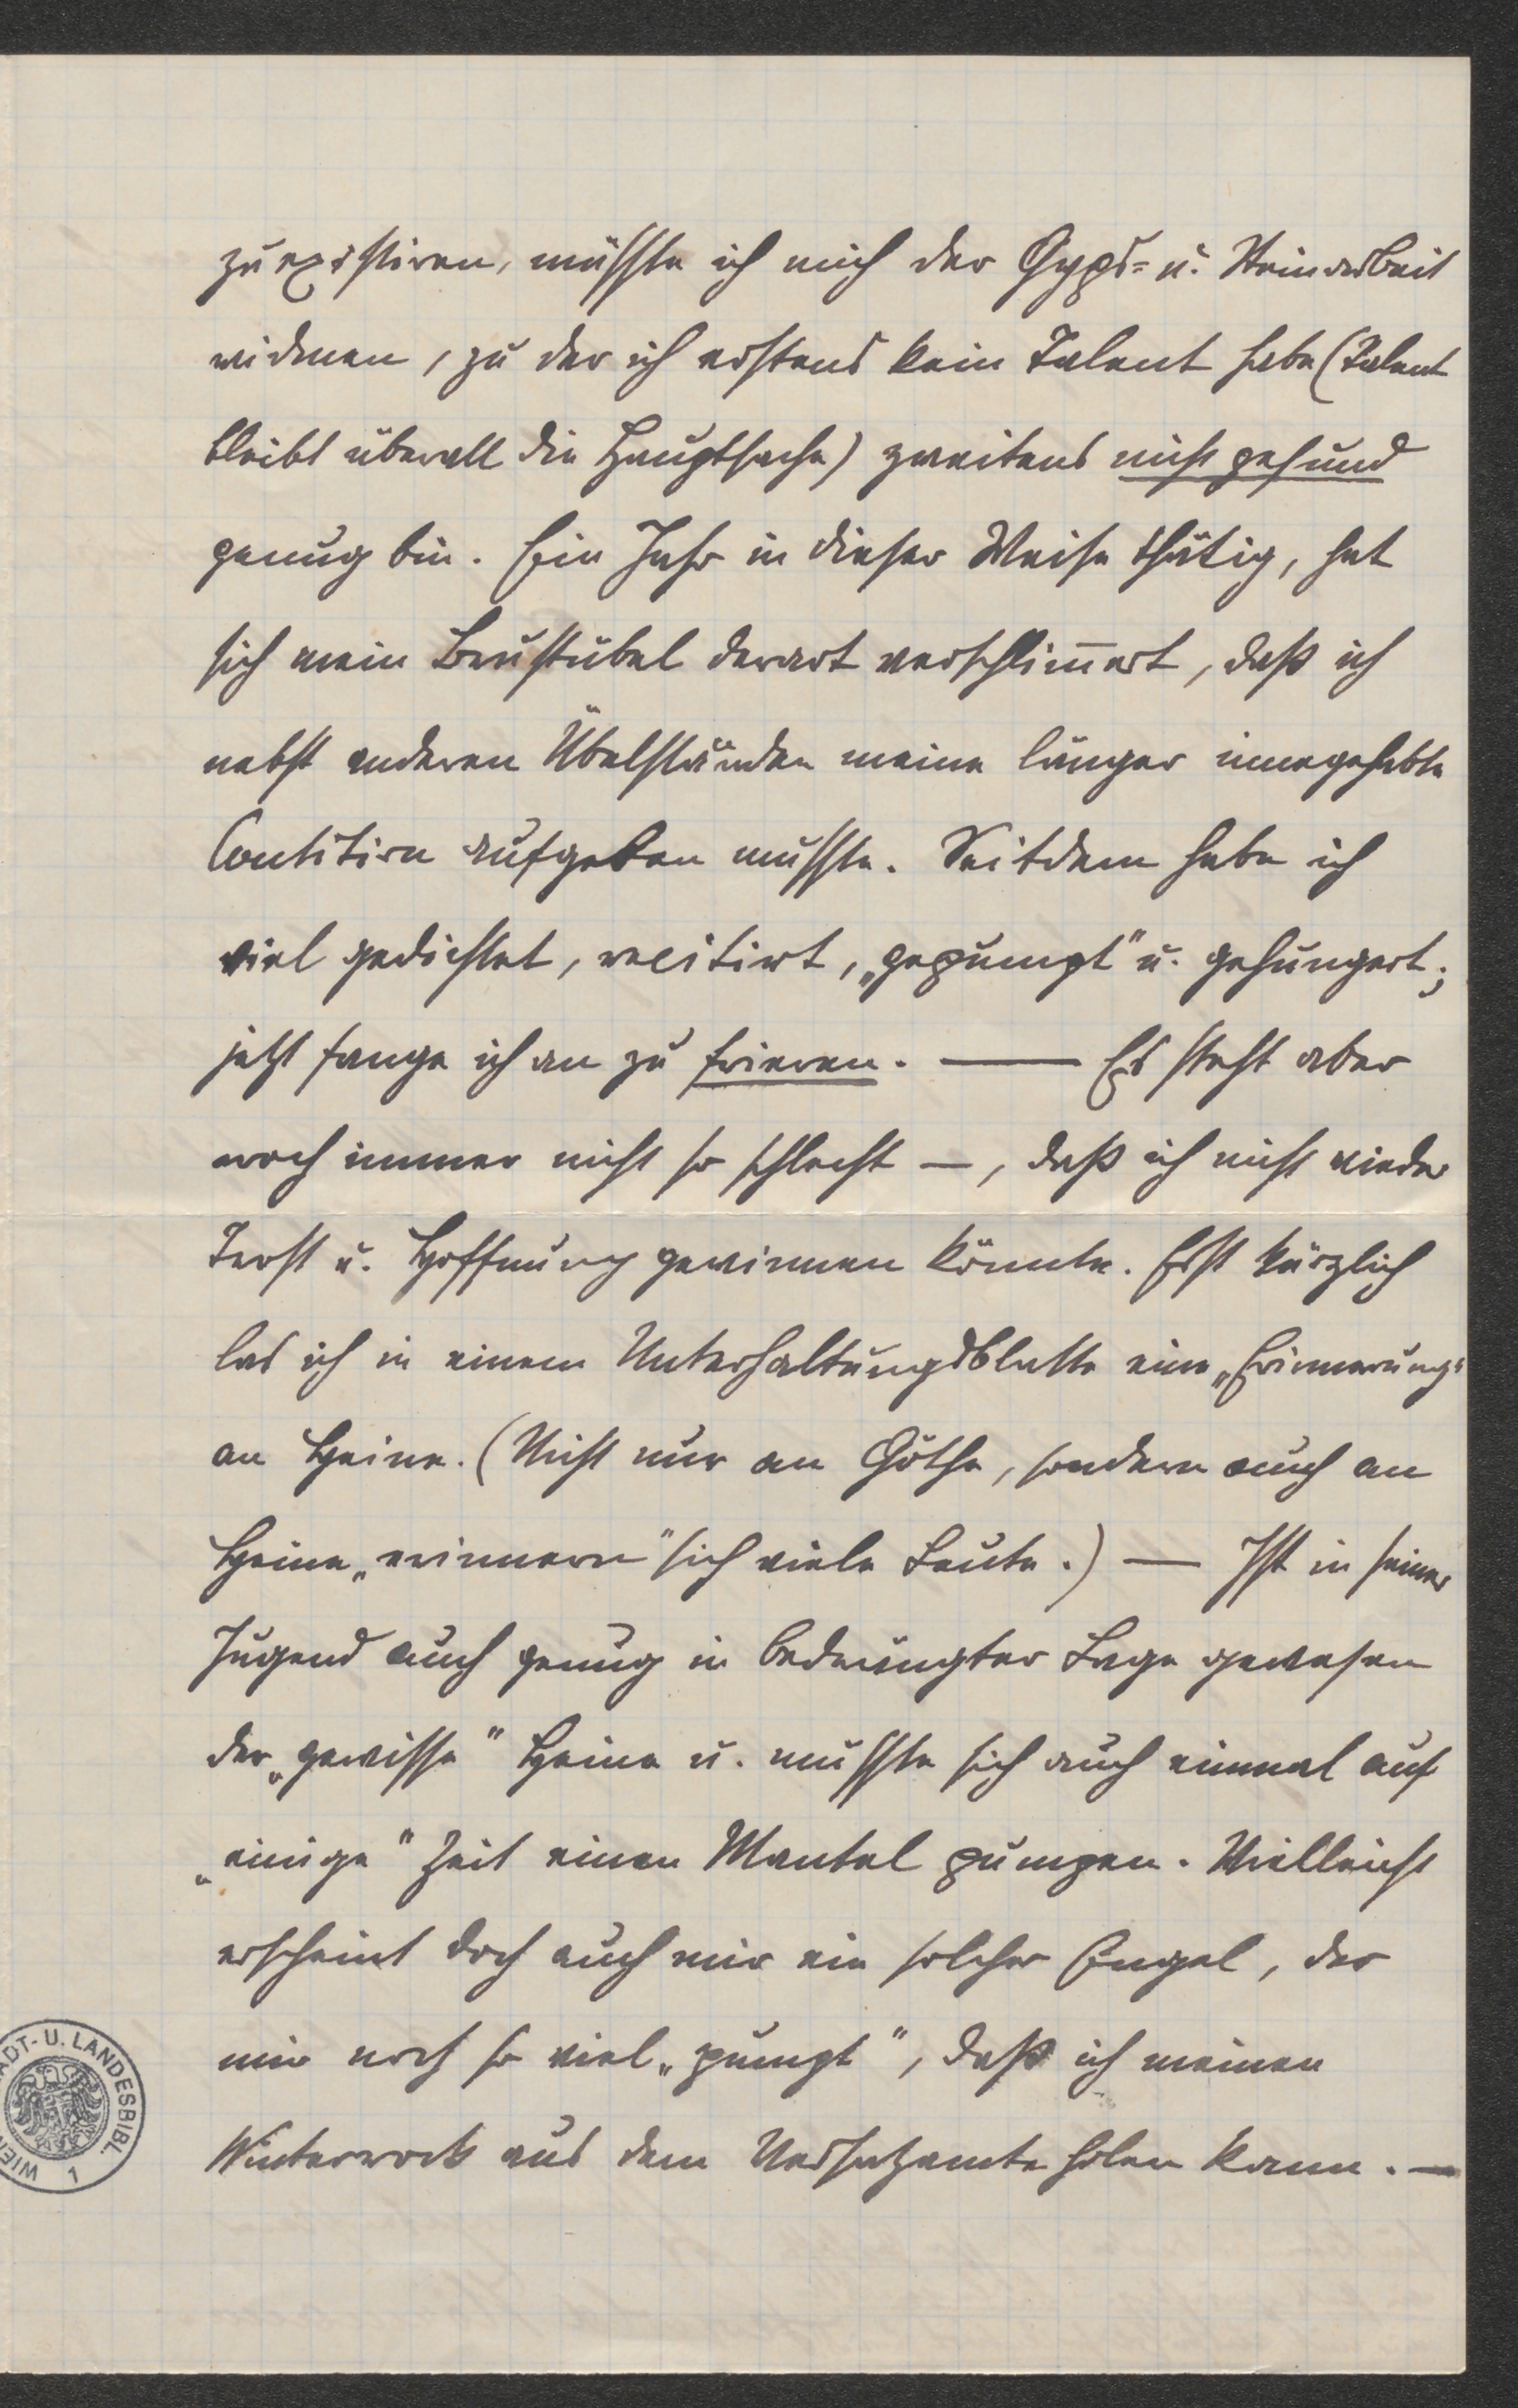 zu existiren, müsste ich mich der Gyps= u. Steinarbeit
widmen, zu der ich erstens kein Talent habe (Talent
bleibt überall die Hauptsache) zweitens nicht gesund
genug bin. Ein Jahr in dieser Weise thätig, hat
sich mein Brustübel derart verschlim̄ert, daß ich
nebst anderen Übelständen meine länger innegehabte
Contition aufgeben musste. Seitdem habe ich
viel gedichtet, recitirt, „gepumpt" u. gehungert;
jetzt fange ich an zu frieren. — Es steht aber
noch immer nicht so schlecht —, daß ich nicht wieder
Trost u. Hoffnung gewinnen könnte. Erst kürzlich
las ich in einem Unterhaltungsblatte eine „Erinnerung"
an Heine. (Nicht nur an Göthe, sondern auch an
Heine „erinnern" sich viele Leute.) — Ist in seiner
Jugend auch genug in bedrängter Lage gewesen
der „gewisse" Heine u. musste sich auch einmal auf
„einige" Zeit einen Mantel pumpen. Vielleicht
erscheint doch auch mir ein solcher Engel, der
mir noch so viel „pumpt", daß ich meinen
Winterrock aus dem Versatzamte holen kann. —
ADT- U. LANDESBIBL. WIEN 1